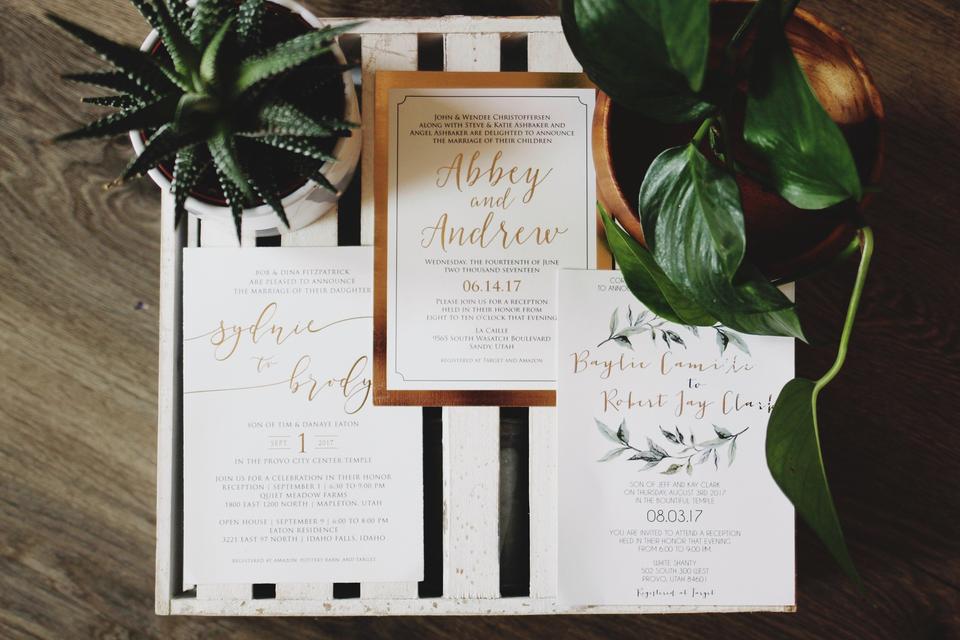 BOB & DINA FITZPATRICK
ARE PLEASED TO ANNOUNCE
THE MARRIAGE OF THEIR DAUGHTER
sydnie
to
brody
SON OF TIM & DANAYE EATON
SEPT 1 2017
IN THE PROVO CITY CENTER TEMPLE
JOIN US FOR A CELEBRATION IN THEIR HONOR
RECEPTION | SEPTEMBER 1 | 6:30 TO 9:00 PM
QUIET MEADOW FARMS
1800 EAST 1200 NORTH | MAPLETON, UTAH
OPEN HOUSE | SEPTEMBER 9 | 6:00 TO 8:00 PM
EATON RESIDENCE
3221 EAST 97 NORTH | IDAHO FALLS, IDAHO
REGISTERED AT AMAZON, POTTERY BARN, AND TARGET
JOHN & WENDEE CHRISTOFFERSEN
ALONG WITH STEVE & KATIE ASHBAKER AND
ANGEL ASHBAKER ARE DELIGHTED TO ANNOUNCE
THE MARRIAGE OF THEIR CHILDREN
Abbey
and
Andrew
WEDNESDAY, THE FOURTEENTH OF JUNE
TWO THOUSAND SEVENTEEN
06.14.17
PLEASE JOIN US FOR A RECEPTION
HELD IN THEIR HONOR FROM
EIGHT TO TEN O'CLOCK THAT EVENING
LA CAILLE
9565 SOUTH WASATCH BOULEVARD
SANDY, UTAH
REGISTERED AT TARGET AND AMAZON
Baylie
to
Robert Jay Clark
SON OF JEFF AND KAY CLARK
ON THURSDAY, AUGUST 3RD 2017
IN THE BOUNTIFUL TEMPLE
08.03.17
YOU ARE INVITED TO ATTEND A RECEPTION
HELD IN THEIR HONOR THAT EVENING
FROM 6:00 TO 9:00 PM
WHITE SHANTY
502 SOUTH 300 WEST
PROVO, UTAH 84601
Registered at Target